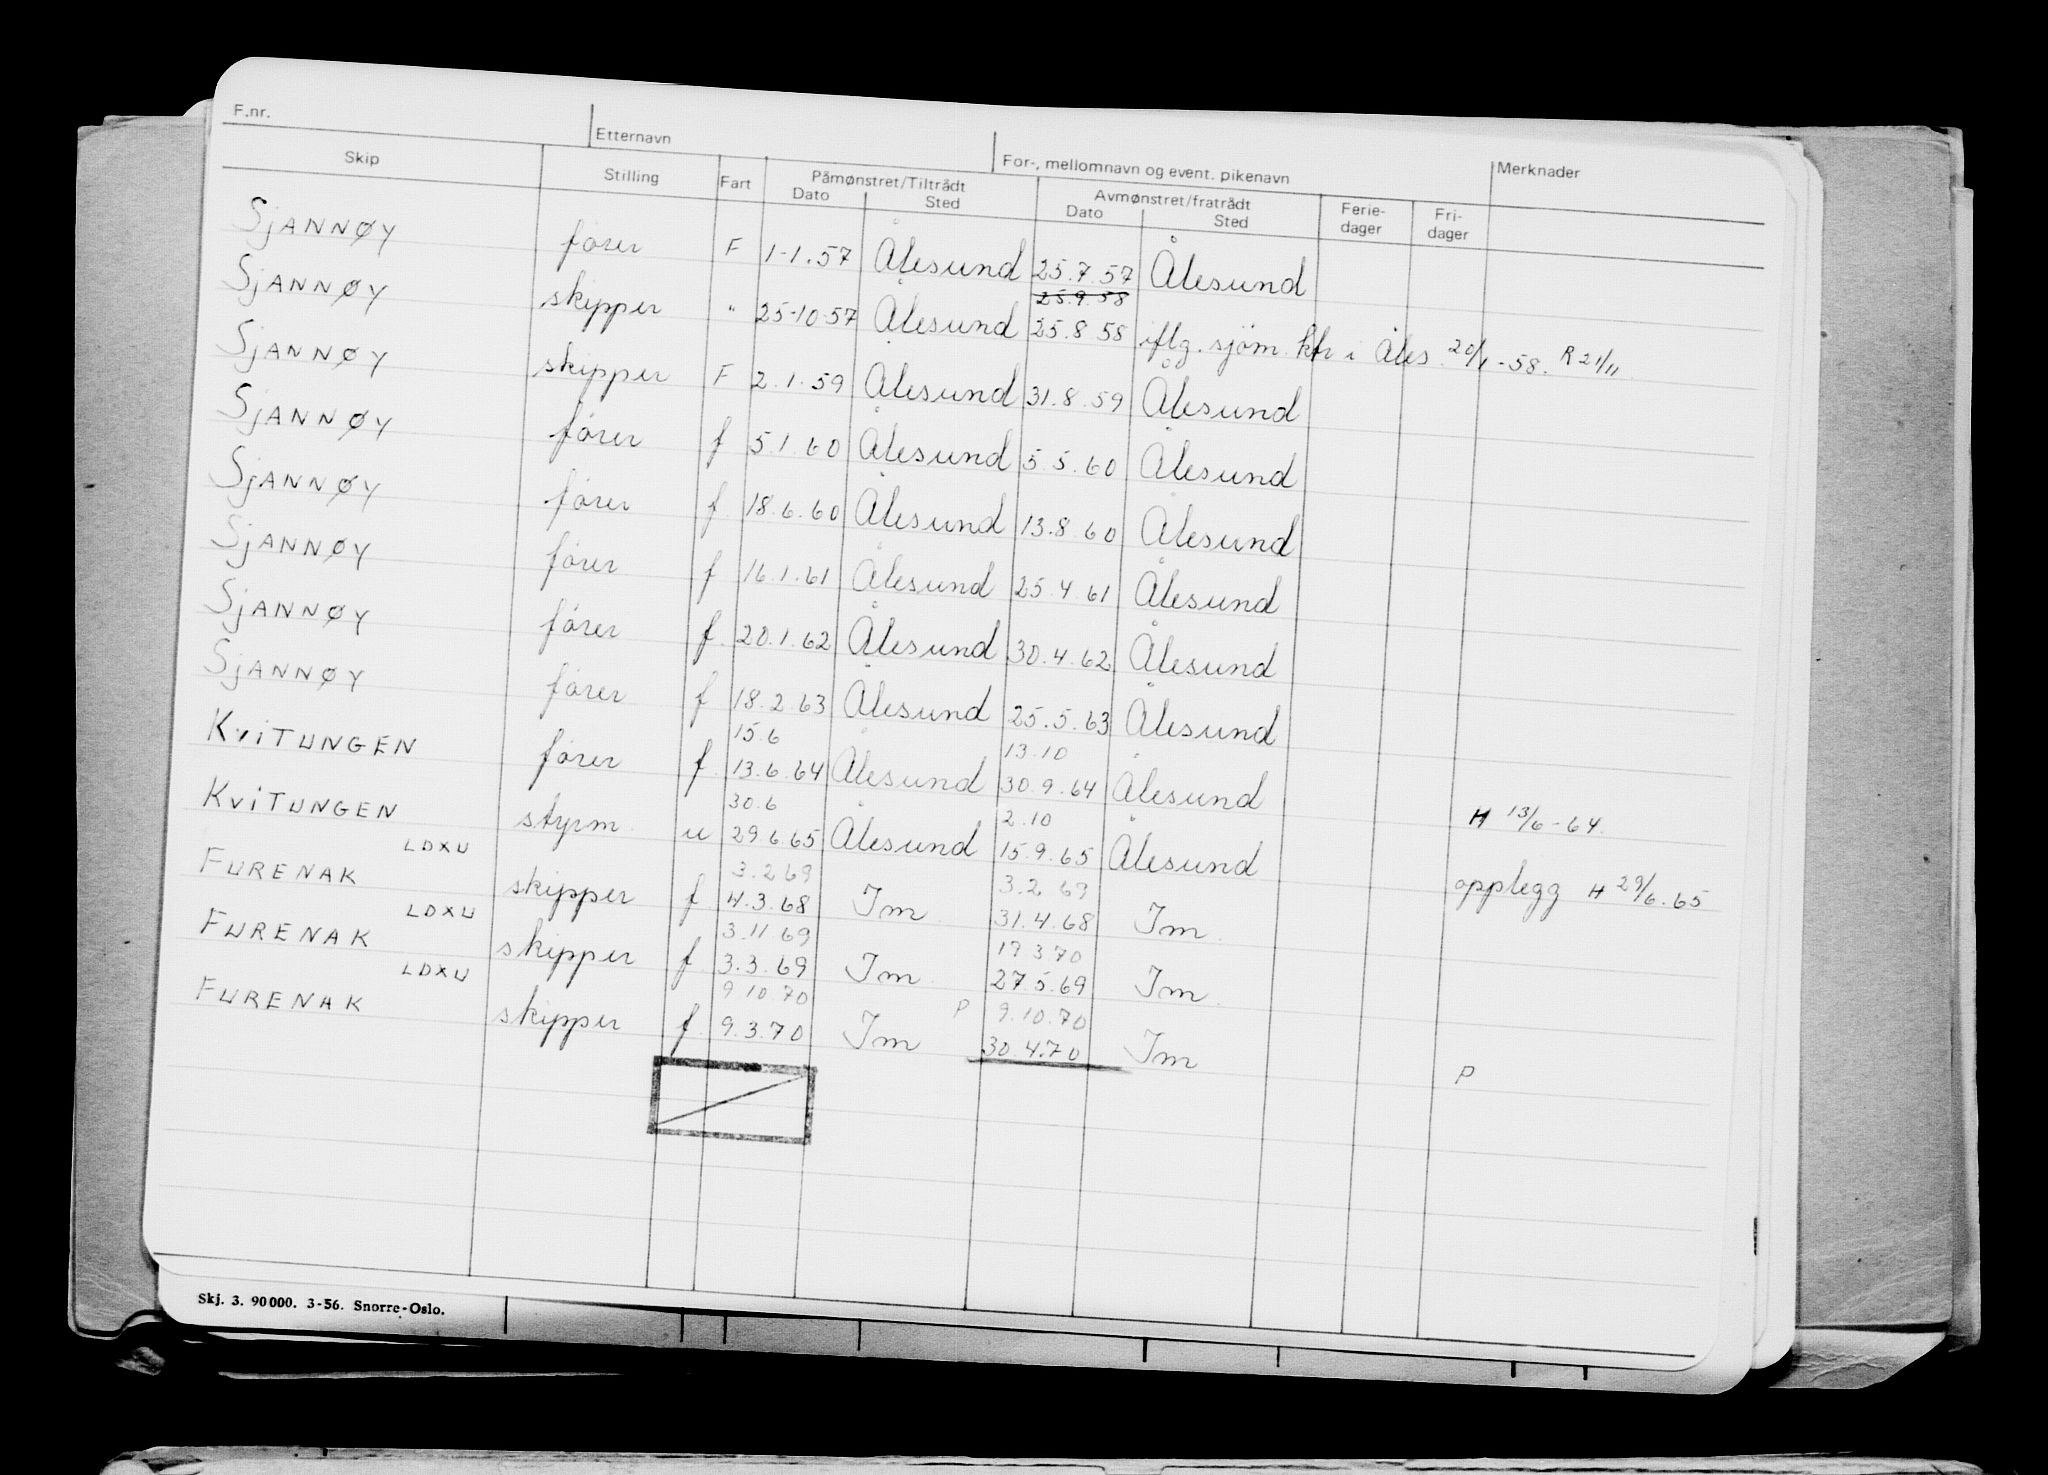 F.nr. Etternavn For-, mellomnavn og event. pikenavn
Skip Stilling Fart Påmønstret/Tiltrådt Dato Sted Avmønstret/fratrådt Dato Sted Ferie-dager Fri-dager Merknader
SjANNØY fører F 1-1.57 Ålesund 25.7.57 Ålesund
25.9.58
SjANNØY skipper " 25-10-57 Ålesund 25.8 58 iflg. sjøm. ktr i Åles. 20/1-58. R 21/11.
SjANNØY skipper F 2.1.59 Ålesund 31.8.59 Ålesund
SjANNØY fører f 5.1.60 Ålesund 5.5.60 Ålesund
SjANNØY fører f 18.6.60 Ålesund 13.8 60 Ålesund
SjANNØY fører f 16.1.61 Ålesund 25.4 61 Ålesund
SjANNØY fører f. 20.1.62 Ålesund 30.4.62 Ålesund
SjANNØY fører f 18.2.63 Ålesund 25.5.63 Ålesund
15.6 13.10
KviTUNGEN fører f. 13.6.64 Ålesund 30.9.64 Ålesund H 13/6-64.
30.6 2.10
KviTUNGEN styrm. u 29.6.65 Ålesund 15.9.65 Ålesund opplegg H 29/6.65
LDXU 3.2 69 3.2 69
FURENAK skipper f. 4.3.68 Im. 31.4.68 Im.
LDXU 3.11 69 19 3.70
FURENAK skipper f. 3.3.69 Im. 27.5.69 Im.
LDXU 9 10.70 P 9.10.70
FURENAK skipper f. 9.3.70 Im 30 4.70 Im P
Skj. 3. 90000. 3-56. Snorre-Oslo.